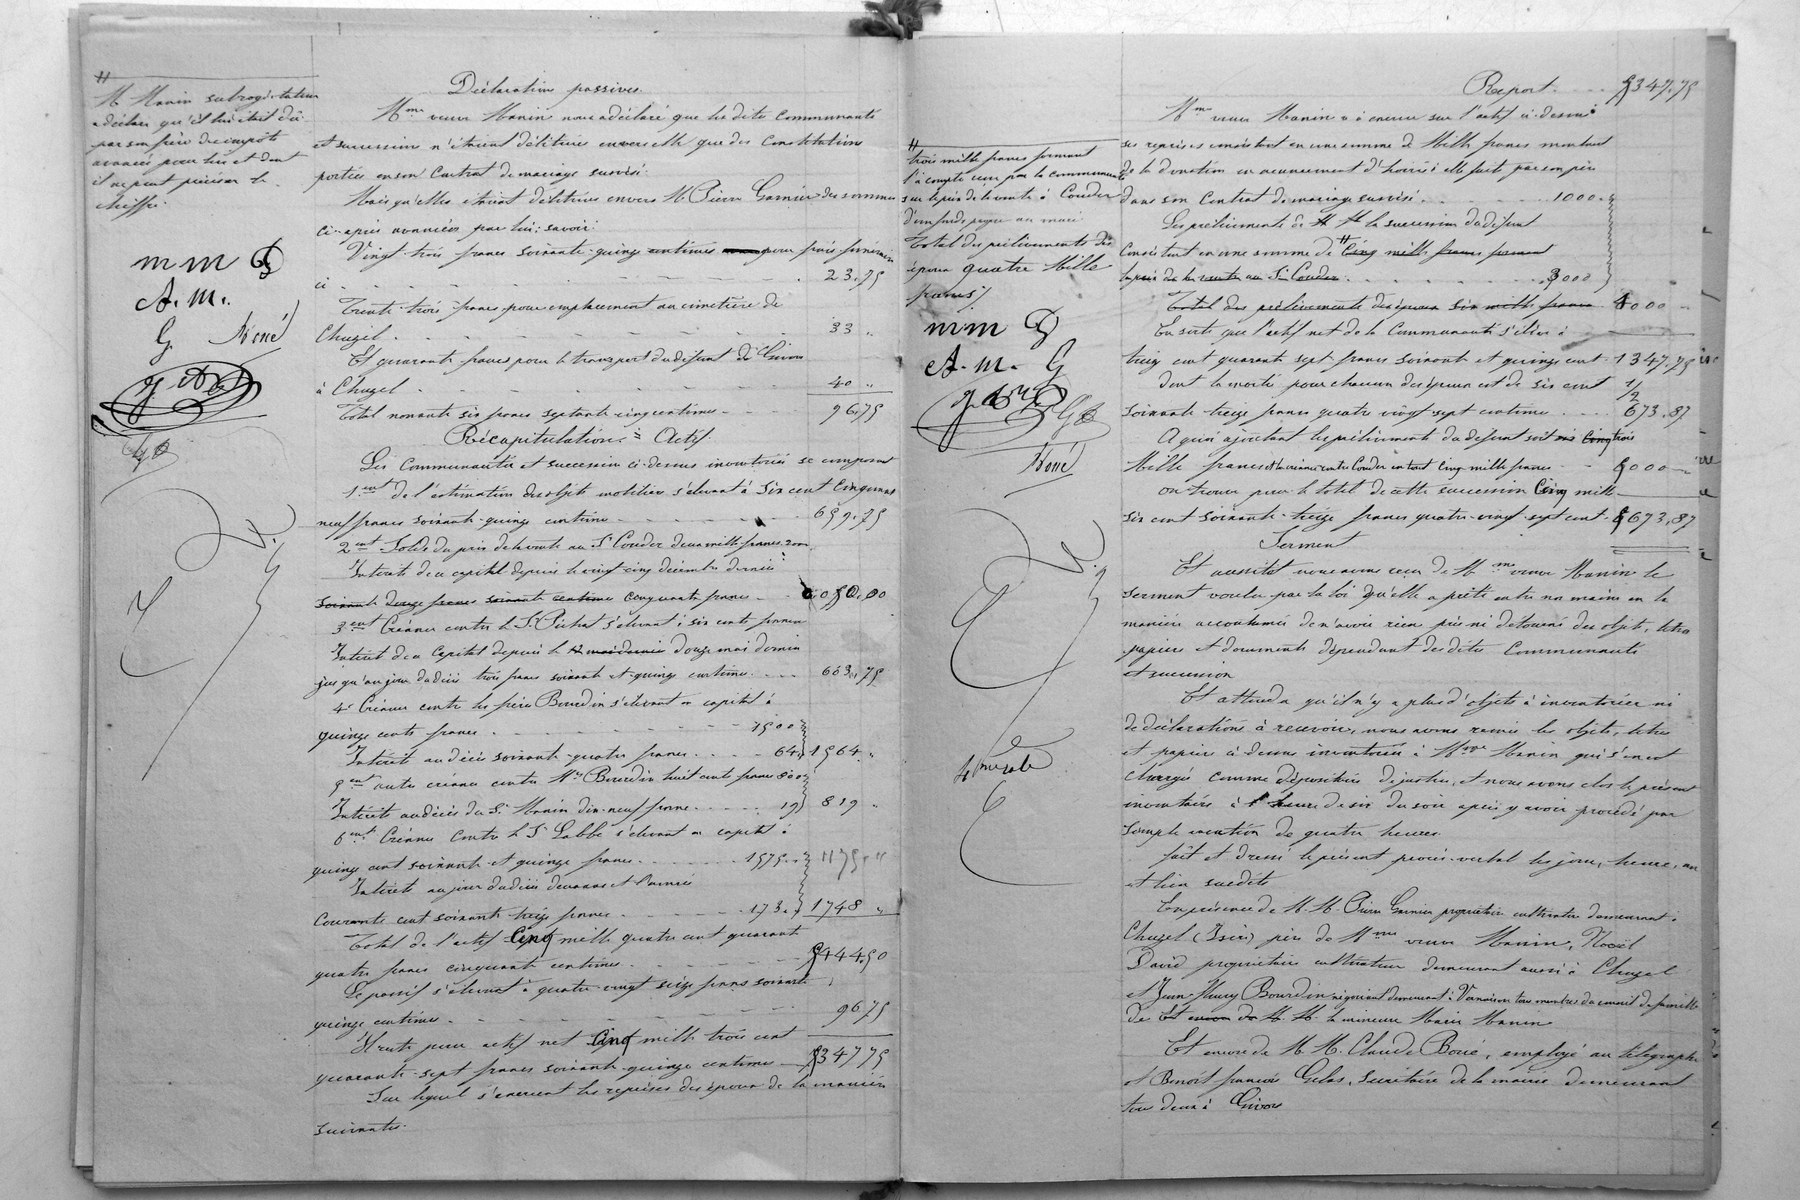 #
M Manin subrogé-tuteur
a déclaré qu'il lui était dû
par son frère des impôts
avancés pour lui et dont
il ne peut préciser le
chiffre.
m m D
A. M.
G. Boué
Déclarations passives
Mme veuve Manin nous a déclaré que les dites Communauté
et succession n'étaient débitrices envers elle que des Constitutions
portées en son Contrat de mariage susvisé.
Mais qu'elles étaient débitrices envers M. Pierre Garnier des sommes
ci-après avancées par lui; savoir:
Vingt trois francs soixante-quinze centimes pour frais funéraires
ci 23.75
Trente-trois francs pour emplacement au cimetière de
Chuzel 33 "
Et quarante francs pour le transport du défunt de Givors
à Chuzel 40 "
Total nonante six francs septante-cinq centimes 96.75
Récapitulation = Actif.
Les Communauté et succession ci-dessus inventoriées se composent
1ent de l'estimation des objets mobiliers s'élevant à Six cent Cinquante
neuf francs soixante-quinze centimes 659.75
2ent Solde du prix de la vente au Sr Couder deux mille francs 2000
Intérêts de ce capital depuis le vingt-cinq décembre dernier
soixante douze francs soixante centimes cinquante francs 2.050.00
3ent Créance contre le Sr Pichat s'élevant à six cents francs
Intérêt de ce Capital depuis le douze mai dernier
jusqu'au jour du décès trois francs soixante-et-quinze centimes 603.75
4° Créance contre les frères Bourdin s'élevant en capital à
quinze cents francs 1500
Intérêts au décès soixante-quatre francs 64 1564 "
5ent autre créance contre Mr Bourdin huit cents francs 800
Intérêts au décès du Sr Manin dix-neuf francs 19 819 "
6ent Créance Contre le Sr Labbe s'élevant en capital à
quinze cent soixante-et-quinze francs 1575 1175 "
Intérêts au jour du décès deux ans et l'année
Courante cent soixante treize francs 173 1748 "
Total de l'actif Cinq mille quatre cent quarante
quatre francs cinquante centimes 5444.50
Le passif s'élevant à quatre vingt seize francs soixante
quinze centimes 96 75
Il reste pour actif net Cinq mille trois cent
quarante-sept francs soixante-quinze centimes 5347 75
Sur lequel s'exercent les reprises des époux de la manière
suivante.
#
trois mille francs formant
l'à compte reçu par la communauté
sur le prix de la vente à Couder
d'un fonds propre au mari
Total des prélèvements des
époux quatre Mille
francs/.
m m D
A. M. G
Boué
4me rôle
Report 5347.75
Mme veuve Manin a à exercer sur l'actif ci-dessus
ses reprises consistant en une somme de Mille francs montant
de la donation en avancement d'hoirie à elle faite par son père
dans son Contrat de mariage susvisé 1000 "
Les prélèvements de la succession du défunt
Consistent en une somme de # Cinq mille francs formant
le prix de la vente au Sr Couder 3000
Total des prélèvements des époux six mille francs 4000
En sorte que l'actif net de la Communauté s'élève à
treize cent quarante sept francs soixante et quinze cent. 1347.75
dont la moitié pour chacun des époux est de six cent 1/2
soixante-treize francs quatre vingt sept centimes 673.87
A quoi ajoutant les prélèvements du défunt soit Cinq trois
Mille francs et la créance contre Couder en tout Cinq mille francs 5000
on trouve pour le total de cette succession Cinq mille
six cent soixante-treize francs quatre-vingt-sept cent. 5673.87
Serment
Et aussitôt nous avons reçu de Mme veuve Manin le
serment voulu par la loi qu'elle a prêté entre nos mains en la
manière accoutumée de n'avoir rien pris ni détourné des objets, titres
papiers et documents dépendant des dites Communauté
et succession
Et attendu qu'il n'y a plus d'objets à inventorier ni
de déclarations à recevoir, nous avons remis les objets, titres
et papiers ci-dessus inventoriés à Mme Manin qui s'en est
chargée comme dépositaire de justice, et nous avons clos le présent
inventaire à l'heure de six du soir après y avoir procédé par
simple vacation de quatre heures.
Fait et dressé le présent procès-verbal les jour, heure, an
et lieu susdits
En présence de M. M. Pierre Garnier propriétaire cultivateur demeurant à
Chuzel (Isère) père de Mme veuve Manin, Noël
David propriétaire cultivateur demeurant aussi à Chuzel
et Jean Fleury Bourdin négociant demeurant à Vernaison tous membres du conseil de famille
de la mineure Marie Manin
Et encore de M. M. Claude Boué, employé au télégraphe
et Benoît François Gelas, Secrétaire de la mairie demeurant
tous deux à Givors